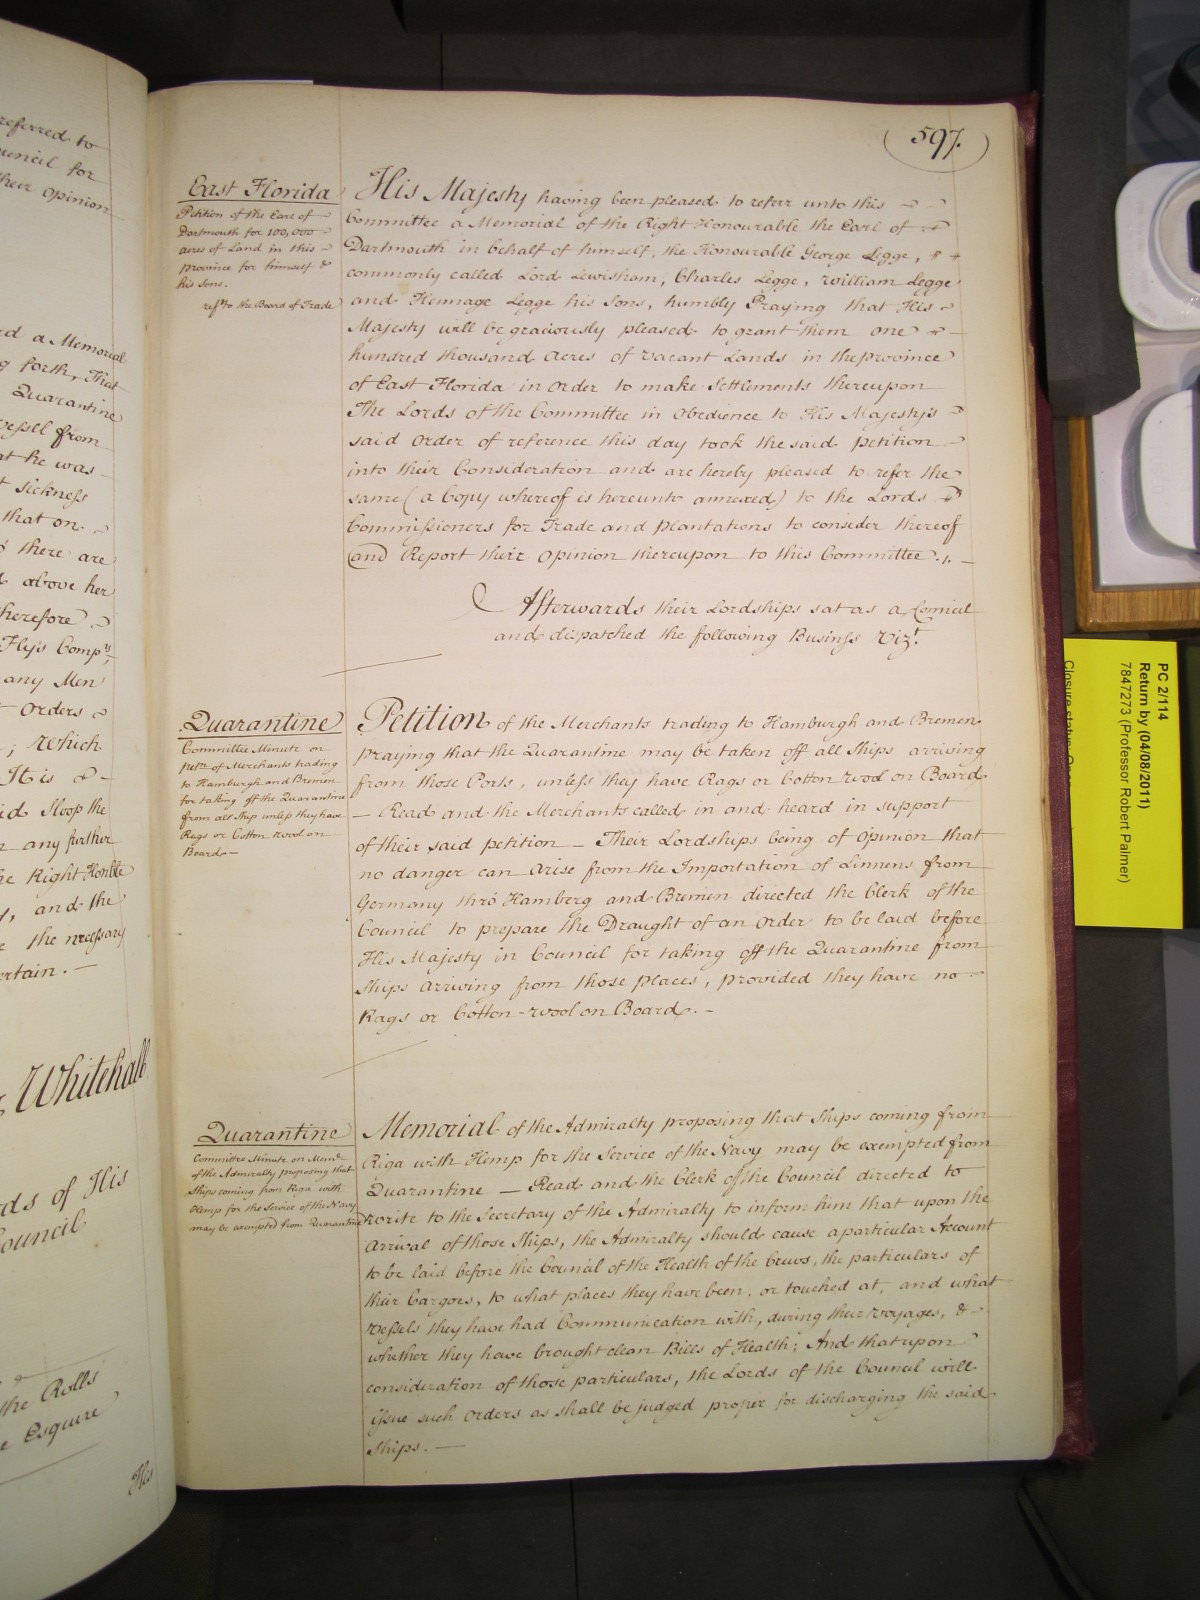 referred to
ouncil for
their opinion
rd a Memorial
g forth, That
Quarantine
vessell from
at he was
sickness
that on
there are
above her
therefore
Fly's Comp^y
any Men
Orders
; which
It is
id Sloop the
any further
he Right Honble
y, and the
e the necessary
ertain. —
Whitehall
ds of His
ouncil
the Rolls
e Esquire
His
597.
East Florida
Petition of the Earl of
Dartmouth for 100,000
acres of Land in this
province for himself &
his Sons.
ref^d to the Board of Trade
His Majesty having been pleased to referr unto this
Committee a Memorial of the Right Honourable the Earl of
Dartmouth in behalf of himself, the Honourable George Legge,
commonly called Lord Lewisham, Charles Legge, William Legge
and Hennage Legge his Sons, humbly Praying that His
Majesty will be graciously pleased to grant them one
hundred thousand Acres of vacant Lands in the province
of East Florida in Order to make Settlements thereupon
The Lords of the Committee in Obedience to His Majesty's
said Order of reference this day took the said petition
into their Consideration and are hereby pleased to refer the
same (a Copy whereof is hereunto annexed) to the Lords
Commissioners for Trade and plantations to consider thereof
and Report their Opinion thereupon to this Committee. —
Afterwards their Lordships sat as a Council
and dispatched the following Business Viz^t.
Quarantine
Committee Minute on
pet^n of Merchants trading
to Hamburgh and Bremen
for taking off the Quarantine
from all Ship unless they have
Rags or Cotton wool on
Board —
Petition of the Merchants trading to Hamburgh and Bremen
praying that the Quarantine may be taken off all Ships arriving
from those Ports, unless they have Rags or Cotton wool on Board
— Read and the Merchants called in and heard in support
of their said petition — Their Lordships being of Opinion that
no danger can arise from the Importation of Linnens from
Germany thrõ Hamberg and Bremen directed the Clerk of the
Council to prepare the Draught of an Order to be laid before
His Majesty in Council for taking off the Quarantine from
Ships arriving from those places, provided they have no
Rags or Cotton-wool on Board. —
Quarantine
Committee Minute on Mem^l
of the Admiralty proposing that
Ships coming from Riga with
Hemp for the Service of the Navy
may be exempted from Quarantine
Memorial of the Admiralty proposing that Ships coming from
Riga with Hemp for the Service of the Navy may be exempted from
Quarantine — Read and the Clerk of the Council directed to
write to the Secretary of the Admiralty to inform him that upon the
Arrival of those Ships, the Admiralty should cause a particular Account
to be laid before the Council of the Health of the Crews, the particulars of
their Cargoes, to what places they have been, or touched at, and what
vessels they have had Communication with, during their voyages, &
whether they have brought clean Bills of Health; And that upon
consideration of those particulars, the Lords of the Council will
issue such Orders as shall be judged proper for discharging the said
Ships. —
PC 2/114
Return by (04/08/2011)
7847273 (Professor Robert Palmer)
Closure status: